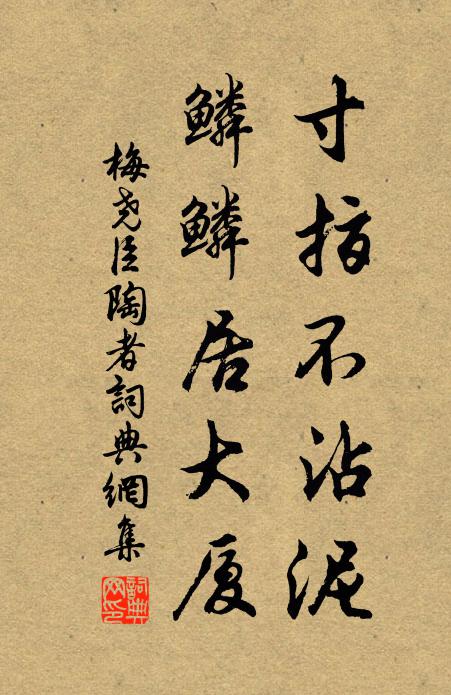 寸指不沾泥
鳞鳞居大厦
梅尧臣陶者詞典網集
詞典
网印